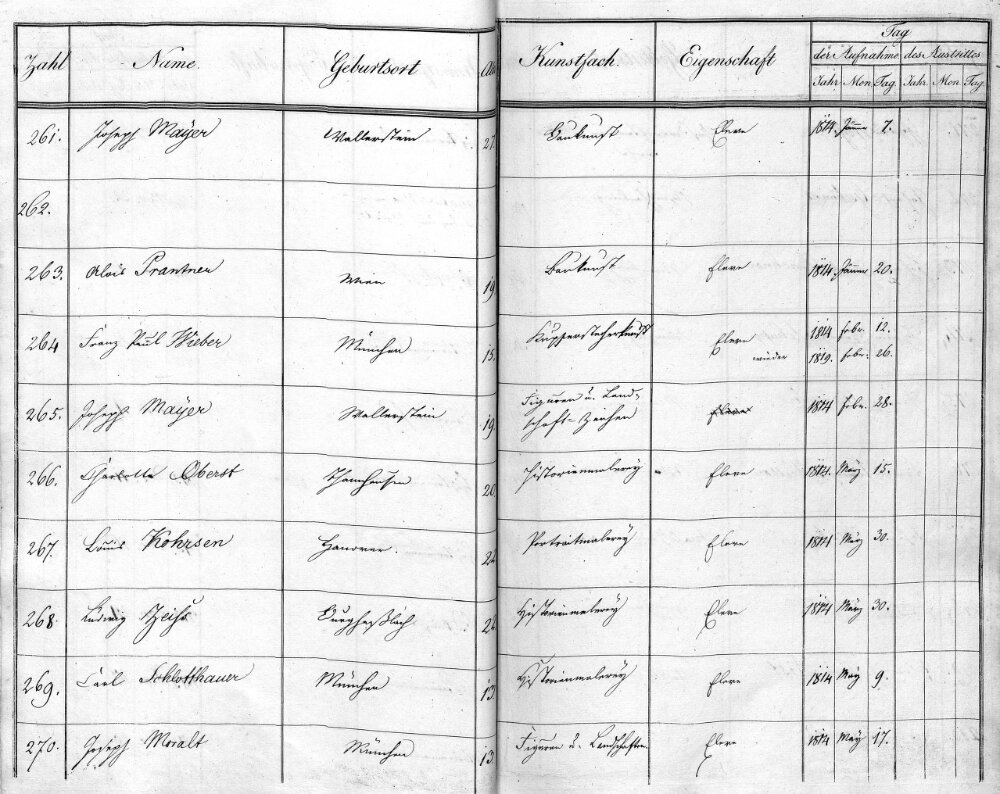 Zahl Name. Geburtsort Kunstfach. Eigenschaft Tag
der Aufnahme des Austrittes
Jahr Mon Tag Jahr Mon Tag
261. Joseph Mayer Wallerstein 27. Baukunst Eleve 1814. Jänner 7.
262.
263. Alois Prantner Wien 19 Baukunst Eleve 1814 Jänner 20.
264 Franz Paul Wieber München 15. Kupferstecherkunst Eleve 1814 febr. 12.
wieder 1819. febr. 26.
265. Joseph Mayer Wallerstein 19. Figuren u. Land-
schaft-Zeichen Eleve 1814 febr. 28.
266. Charlotte Oberst Thannhausen 20. Historienmalerey Eleve 1814. März 15.
267. Louis Kohrsen Hanover. 24 Portraitmalerey Eleve 1814 März 30.
268. Ludwig Zeiss Burghaslach 24. Historienmalerey Eleve 1814 März 30.
269. Carl Schlotthauer München 13. Historienmalerey Eleve 1814 May 9.
270. Joseph Moralt München 13. Figuren u. Landschaften Eleve 1814 May 17.